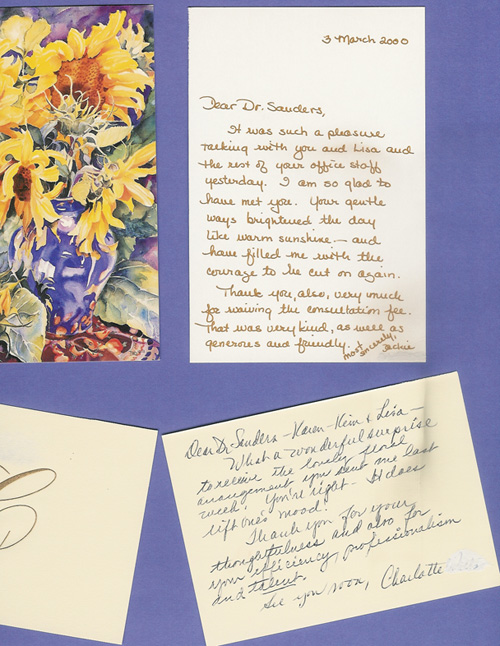 3 March 2000
Dear Dr. Sanders,
It was such a pleasure
talking with you and Lisa and
the rest of your office staff
yesterday. I am so glad to
have met you. Your gentle
ways brightened the day
like warm sunshine — and
have filled me with the
courage to be cut on again.
Thank you, also, very much
for waiving the consultation fee.
That was very kind, as well as
generous and friendly.
most
sincerely,
Dear Dr. Sanders — Karen - Kim & Lisa —
What a wonderful surprise
to receive the lovely floral
arrangement you sent me last
week! You're right - It does
lift one's mood!
Thank you for your
thoughtfulness and also for
your efficiency, professionalism
and talent.
See you soon, Charlotte